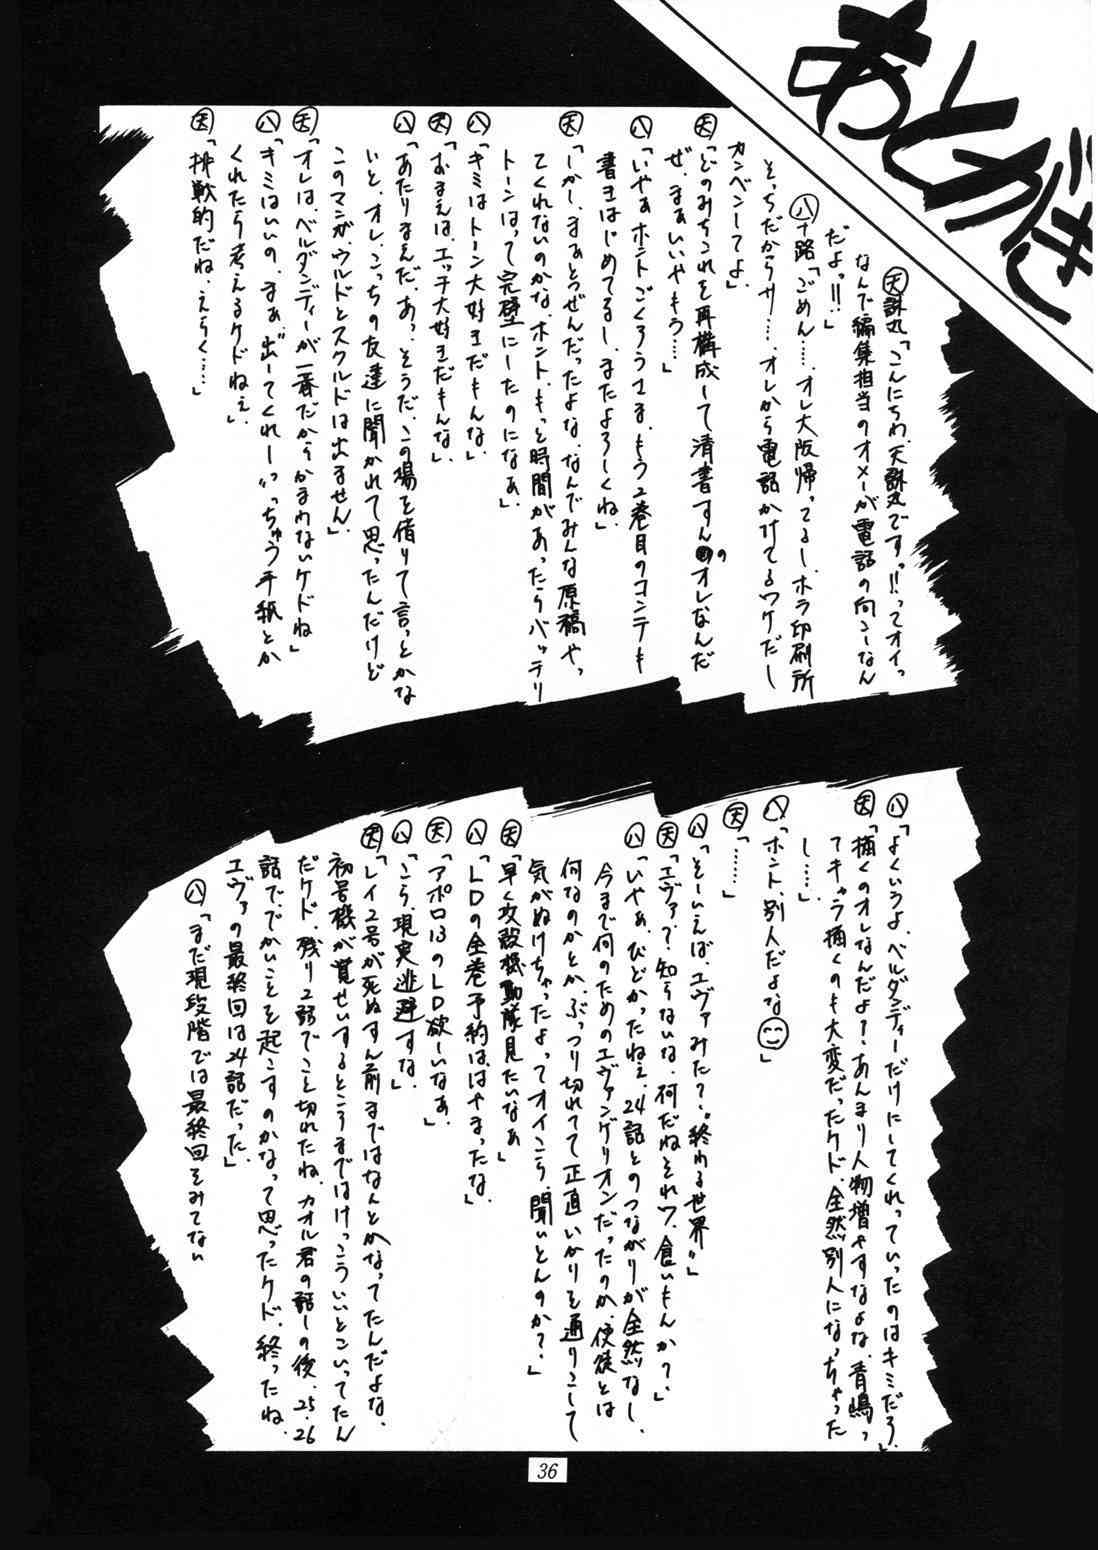 あとがき
天誅丸「こんにちわ、天誅丸ですっ!!ってオイっ
なんで編集担当のオメーが電話の向こーなん
だよっ!!」
八十路「ごめん……、オレ大阪帰ってるし、ホラ印刷所
そっちだからサ……、オレから電話かけてるワケだし
カンベンしてよ」
天「どのみちこれを再構成して清書すんのオレなんだ
ぜ、まぁいいやもう……」
八「いやぁホントごくろうさま、もう2巻目のコンテも
書きはじめてるし、またよろしくね」
天「しかし、まぁとうぜんだったよな、なんでみんな原稿やっ
てくれないのかな、ホント、もっと時間があったらバッチリ
トーンはって完璧にしたのになぁ」
八「キミはトーン大好きだもんな」
天「おまえは、エッチ大好きだもんな」
八「あたりまえだ、あっ、そうだ、この場を借りて言っとかな
いと、オレ、こっちの友達に聞かれて思ったんだけど
このマンガ、ウルドとスクルドは出ません」
天「オレは、ベルダンディーが一番だからかまわないケドね」
八「キミはいいの、まぁ"出ーてくれー"っちゅう手紙とか
くれたら考えるケドねぇ」
天「挑戦的だね、えらく……」
八「よくいうよ、ベルダンディーだけにしてくれっていったのはキミだろ」
天「描くのオレなんだよ?あんまり人物増やすなよな、青嶋っ
てキャラ描くのも大変だったケド、全然別人になっちゃった
し……」
八「ホント、別人だよな」
天「……」
八「そーいえば、エヴァみた?"終わる世界"」
天「エヴァ?知らないな、何だねそれワ、食いもんか?」
八「いやぁ、ひどかったねぇ、24話とのつながりが全然なし、
今まで何のためのエヴァンゲリオンだったのか、使徒とは
何なのかとか、ぶっつり切れてて正直いかりを通りこして
気がぬけちゃったよってオイこら、聞いとんのか?」
天「早く攻殻機動隊見たいなぁ」
八「LDの全巻予約は、はやまったな」
天「アポロ13のLD欲しいなぁ」
八「こら、現実逃避すな」
天「レイ2号が死ぬすん前まではなんとかなってたんだよな、
初号機が覚せいするところまではけっこういいとこいってたん
だケド、残り2話でこと切れたね、カオル君の話しの後、25、26
話で、でかいことを起こすのかなって思ったケド、終ったね、
エヴァの最終回は24話だった」
八「まだ現段階では最終回をみてない
36